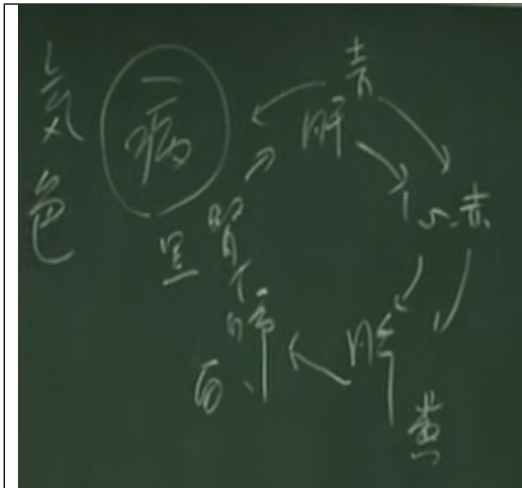 氣色
病
青
肝
心 赤
脾
黄
肺
白
腎
黑